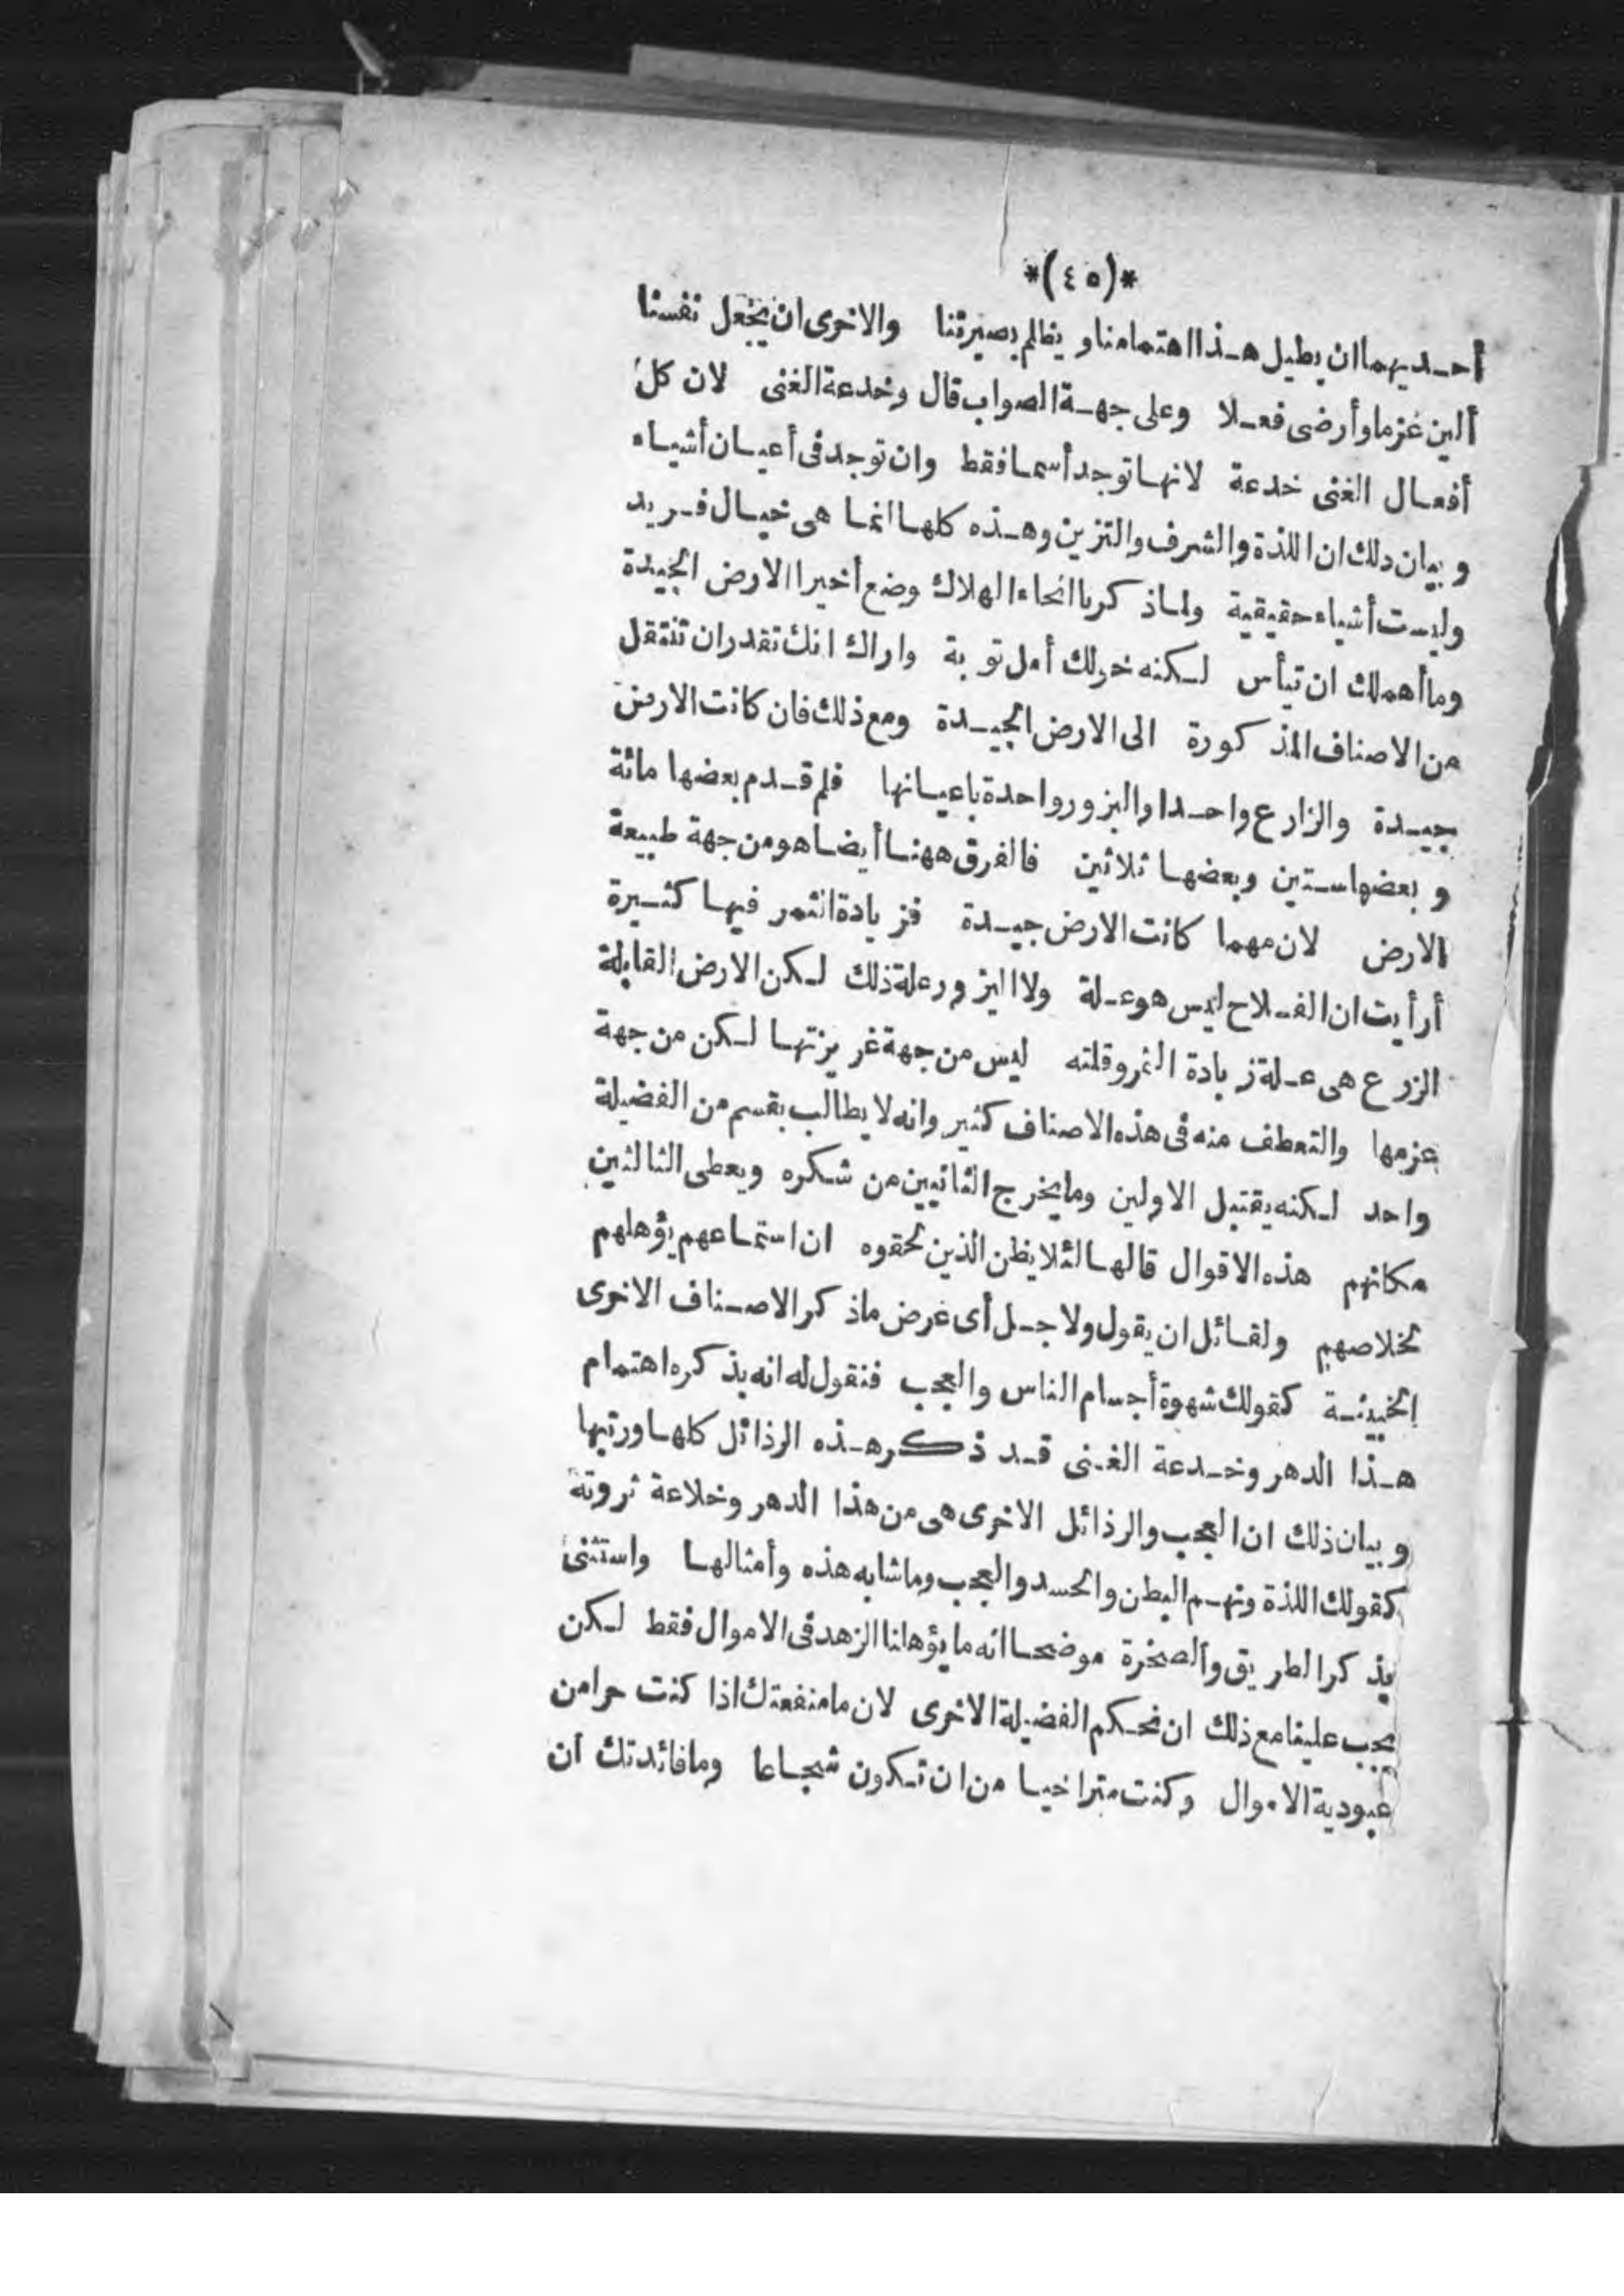 *(٤٥)*
أحديهما ان يطيل هذا اهتمامنا و يظلم بصيرتنا والاخرى ان يجعل نفسنا
ألين عزما وأرضى فعلا وعلى جهة الصواب قال وخدعة الغنى لان كل
أفعال الغنى خدعة لانها توجد أسما فقط وان توجد فى أعيان أشياء
وبيان ذلك ان اللذة والشرف والتزين وهذه كلها انما هى خيال فريد
وليست أشياء حقيقية ولما ذكر بانحاء الهلاك وضع أخيرا الارض الجيدة
وما أهملك ان تيأس لكنه خولك أمل توبة واراك انك تقدر ان تنتقل
من الاصناف المذكورة الى الارض الجيدة ومع ذلك فان كانت الارض
جيدة والزارع واحدا والبزور واحدة باعيانها فلم قدم بعضها مائة
وبعضها ستين وبعضها ثلاثين فالفرق ههنا أيضا هو من جهة طبيعة
الارض لان مهما كانت الارض جيدة فزيادة الثمر فيها كثيرة
أرأيت ان الفلاح ليس هو علة ولا البزور علة ذلك لكن الارض القابلة
الزرع هى علة زيادة الثمر وقلته ليس من جهة غريزتها لكن من جهة
عزمها والتعطف منه فى هذه الاصناف كثير وانه لا يطالب بقسم من الفضيلة
واحد لكنه يقتبل الاولين وما يخرج الثانيين من شكره ويعطى الثالثين
مكانهم هذه الاقوال قالها لئلا يظن الذين لحقوه ان استماعهم يؤهلهم
لخلاصهم ولقائل ان يقول ولاجل أى غرض ماذكر الاصناف الاخرى
الخبيثة كقولك شهوة أجسام الناس والعجب فنقول له انه بذكره اهتمام
هذا الدهر وخدعة الغنى قد ذكر هذه الرذائل كلها ورتبها
وبيان ذلك ان العجب والرذائل الاخرى هى من هذا الدهر وخلاعة ثروته
كقولك اللذة ونهم البطن والحسد والعجب وماشابه هذه وأمثالها واستثنى
بذكر الطريق والصخرة موضحا انه ما يؤهلنا الزهد فى الاموال فقط لكن
يجب علينا مع ذلك ان نحكم الفضيلة الاخرى لان ما منفعتك اذا كنت حرا من
عبودية الاموال وكنت متراخيا من ان تكون شجاعا وما فائدتك ان